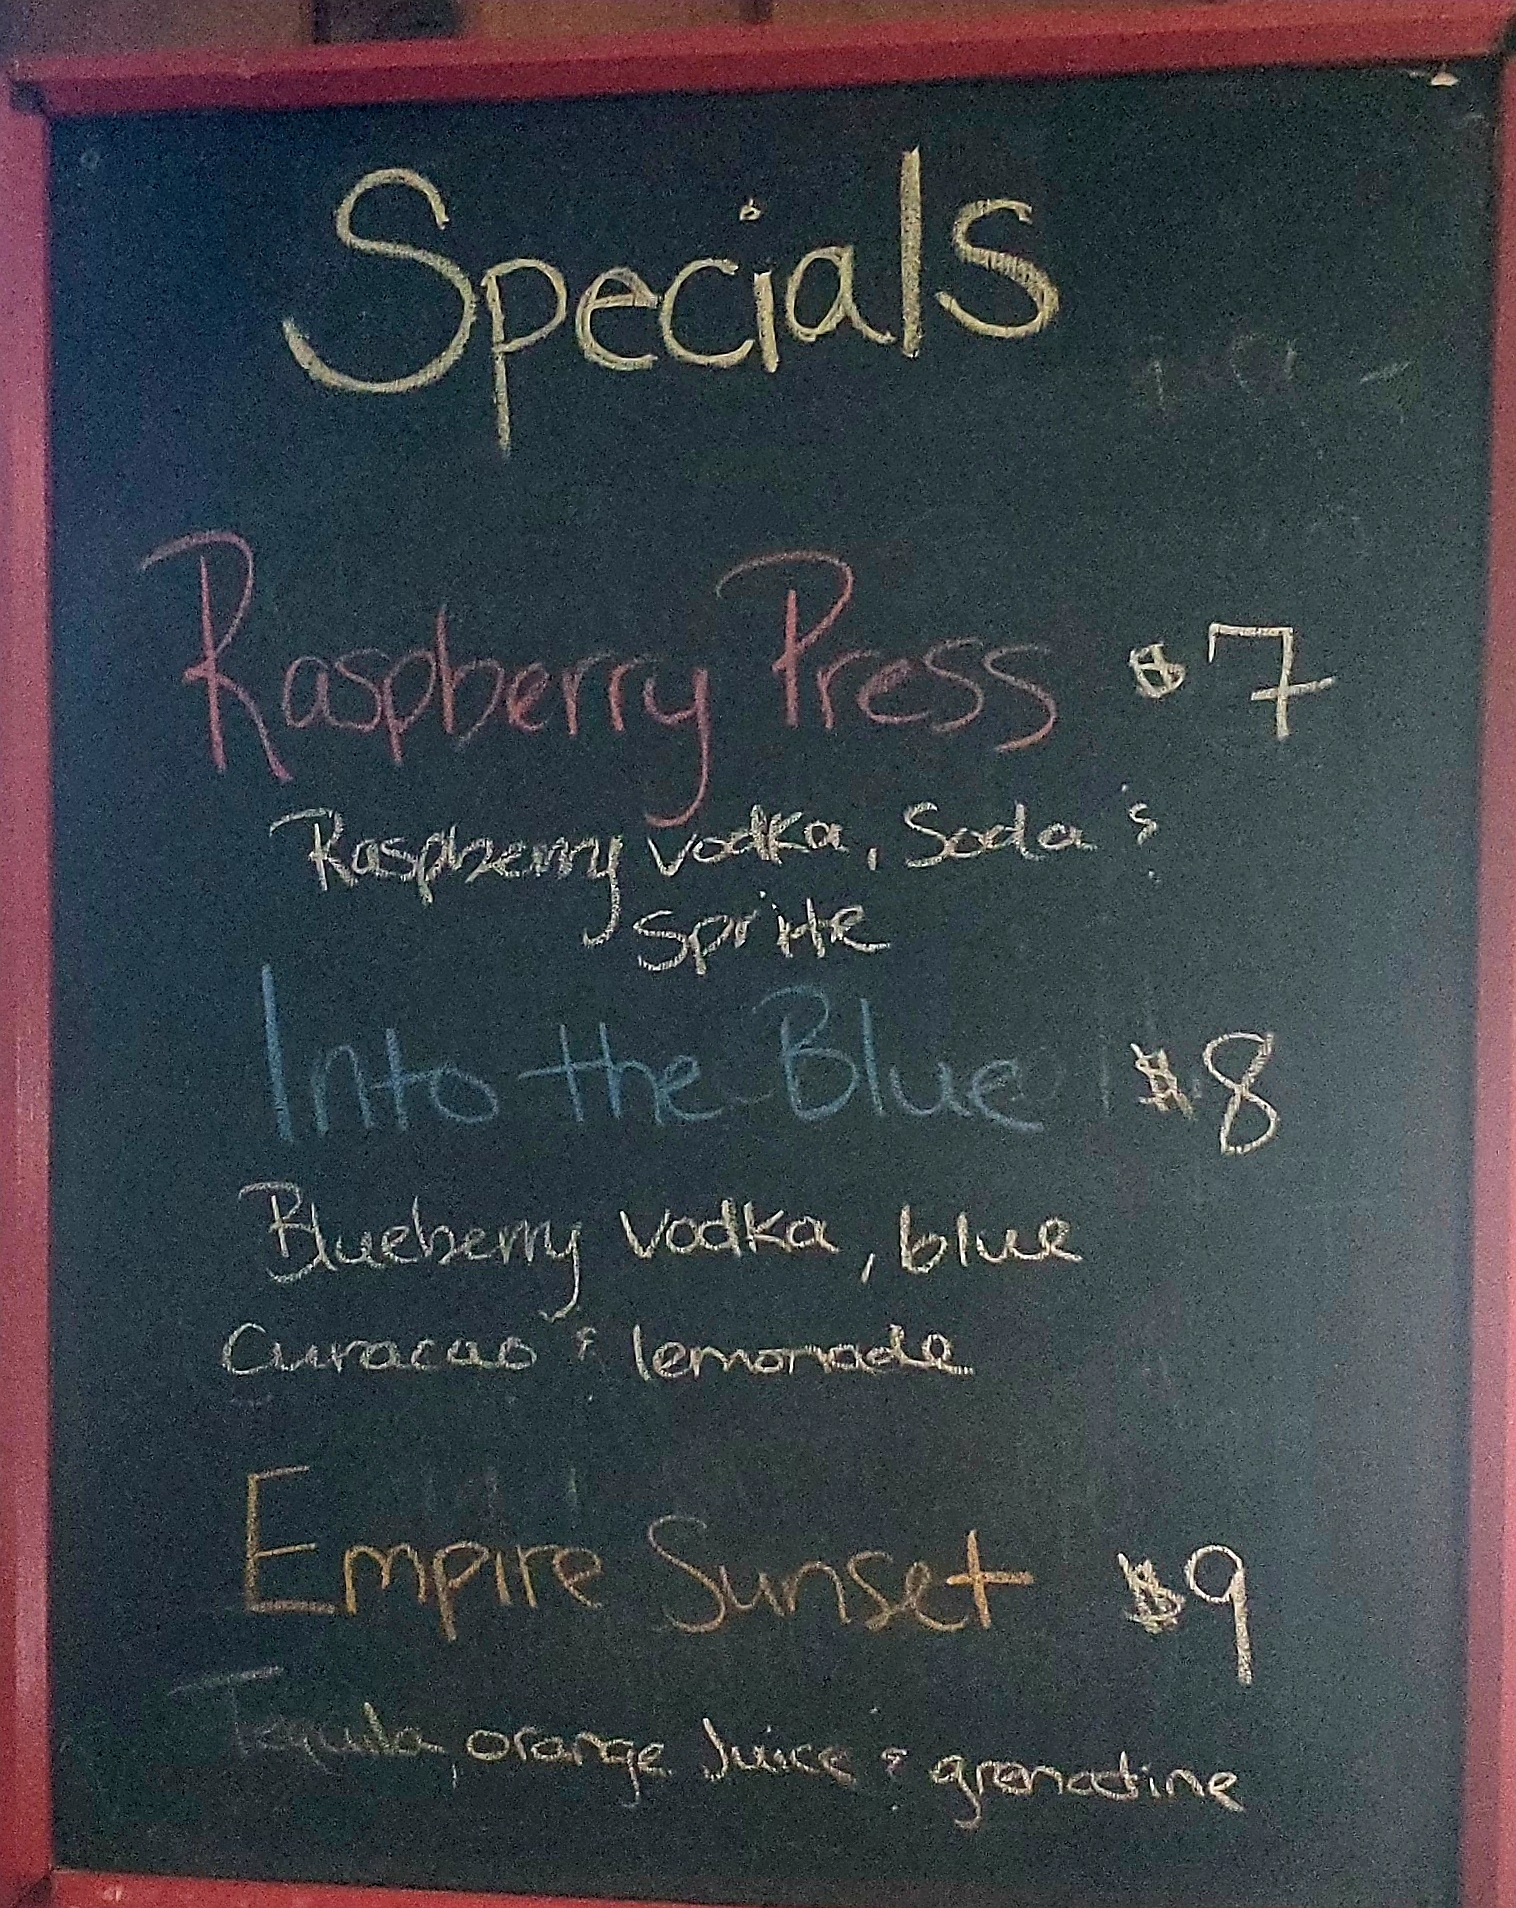 Specials
Raspberry Press $7
Raspberry vodka, Soda &
Sprite
Into the Blue $8
Blueberry Vodka, blue
Curacao & lemonade
Empire Sunset $9
Tequila, orange Juice & grenadine